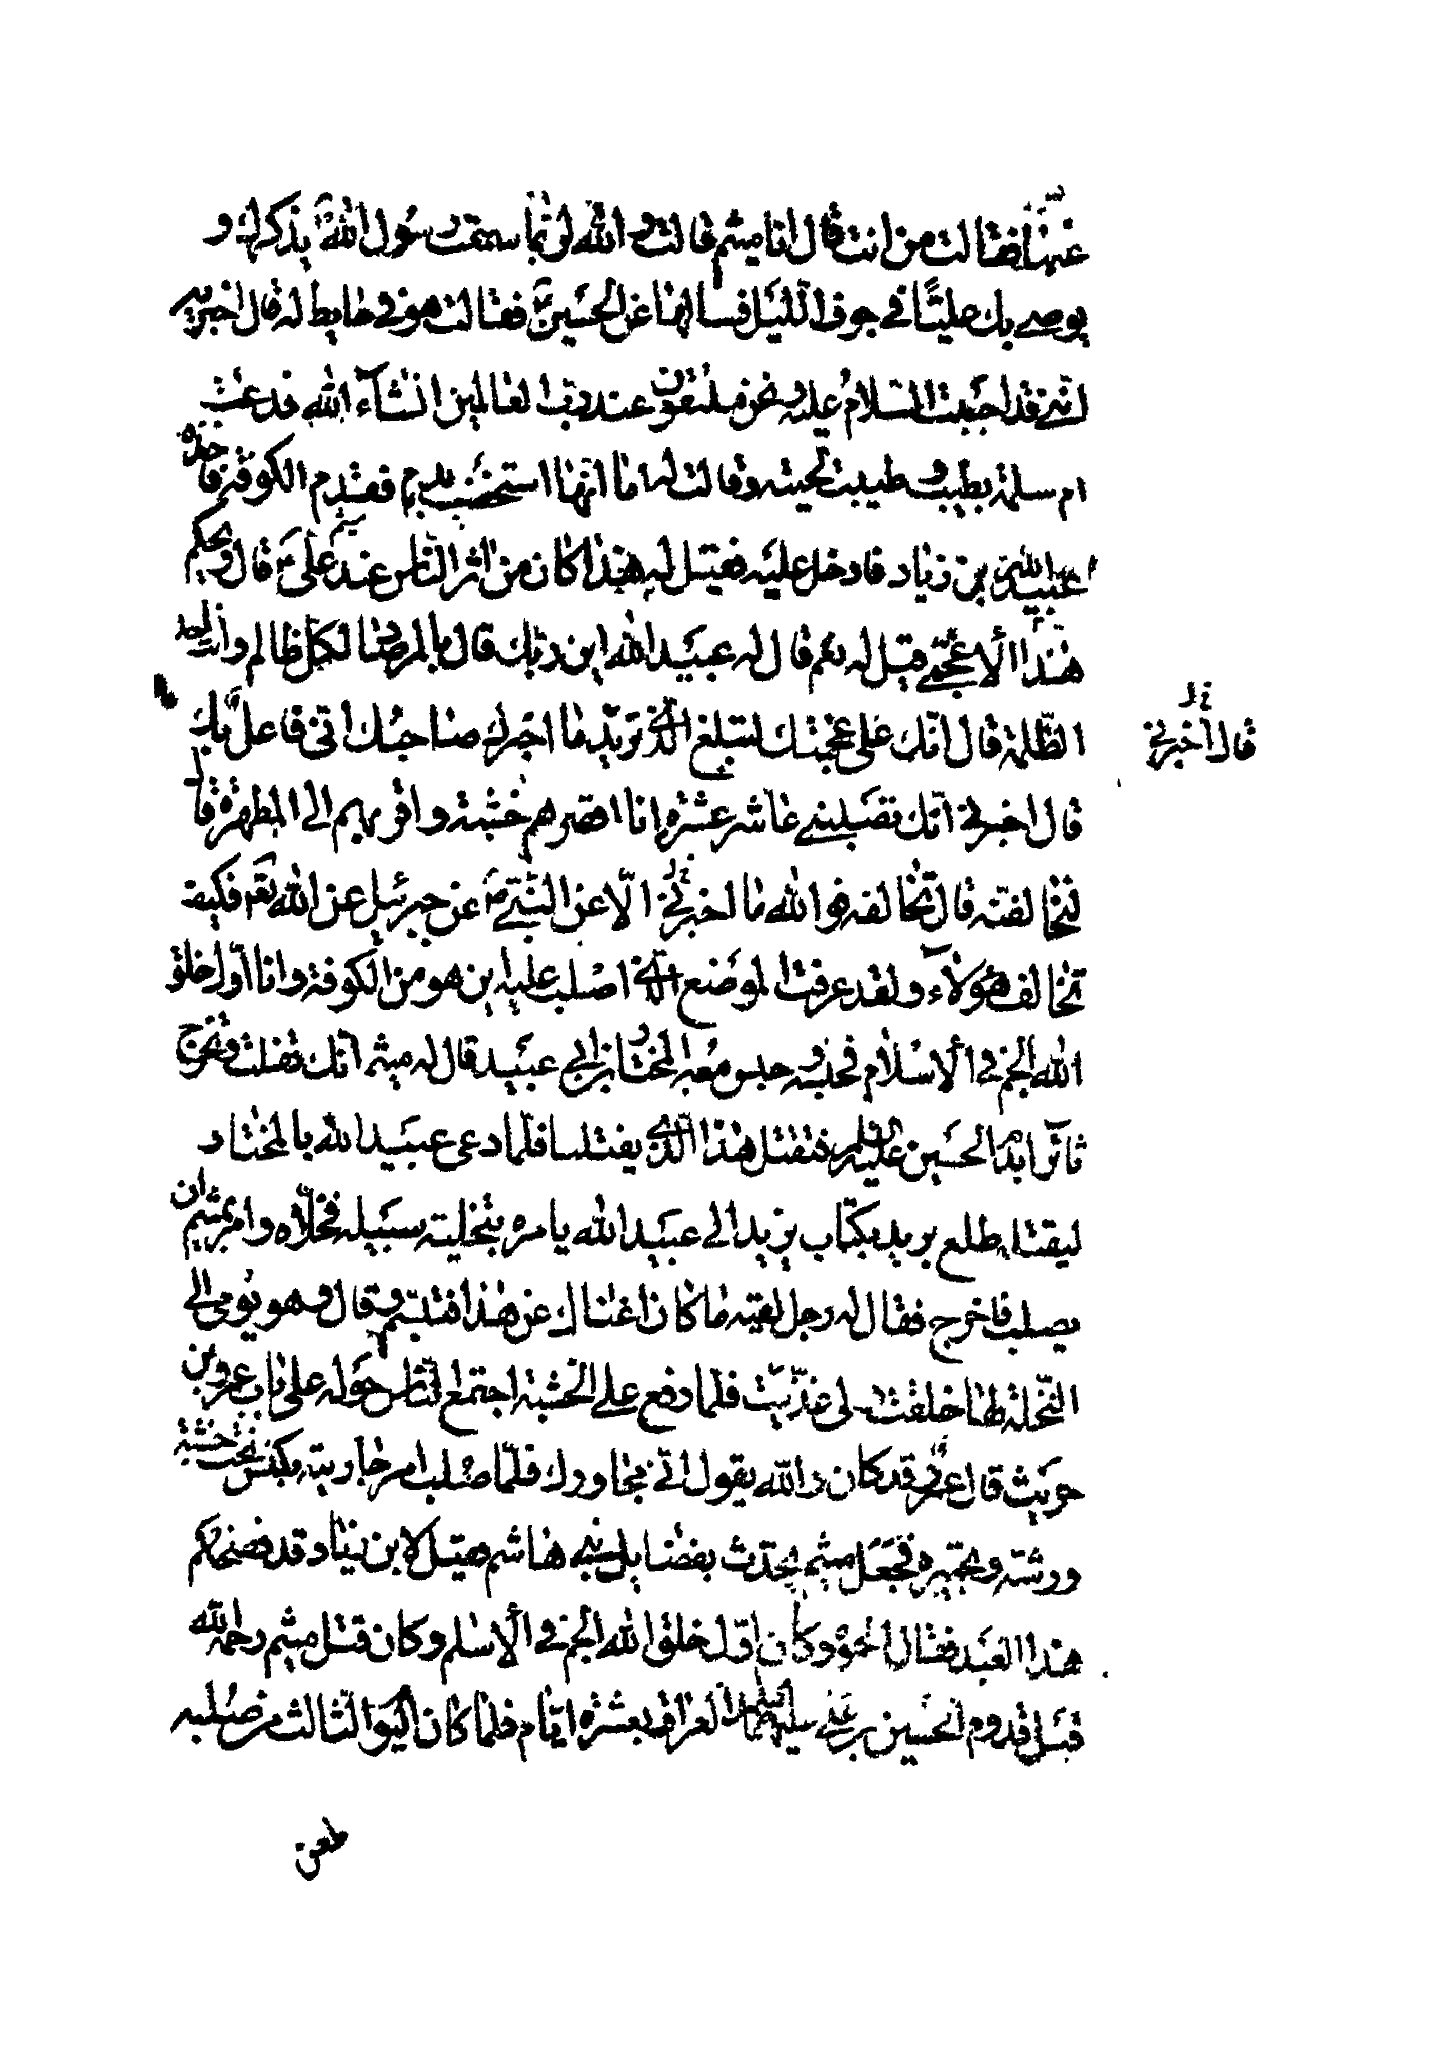 عنها فقالت من انت قال انا ميثم قالت والله لربّما سمعت رسول الله ص يذكرك و
يوصي بك عليّا في جوف الليل فسالها عن الحسين ع فقالت هو في حايط له قال اخبريه
انّي قد احببت السلام عليه ونحن ملتقون عند ربّ العالمين انشآء الله فدعت
ام سلمة بطيب و طيبت لحيته وقالت له اما انها ستخضب بدم فقدم الكوفة فاخذه
عبيد الله بن زياد فادخل عليه فقيل له هذا كان من اثر الناس عند علي ع قال ويحكم
هذا الأعجمي قيل له نعم قال له عبيد الله اين ربّك قال بالمرصاد لكل ظالم وانت احد
الظّلمة قال انّك على عجمتك لتبلغ الّذي تريد ما اخبرك صاحبك انّي فاعل بك
قال اخبرني
قال اخبرني انّك تصلبني عاشر عشرة انا اقصرهم خشبة واقربهم الى المطهرة قال
لنخالفنّه قال تخالفه فوالله ما اخبرني الّا عن النبّي ص عن جبرئيل عن الله تع فكيف
تخالف هؤلآء ولقد عرفت الموضع الّذي اصلب عليه اين هو من الكوفة وانا اول خلق
الله الجم في الأسلام فحبسه وحبس معه المختار بن ابي عبيد قال له ميثم انّك تفلت وتخرج
ثائرا بدم الحسين عليه السلم فتقتل هذا الّذي يقتلنا فلمّا دعى عبيد الله بالمختار
ليقتله طلع بريد بكتاب يزيد الى عبيد الله يامره بتخلية سبيله فخلّاه وامر بميثم ان
يصلب فاخرج فقال له رجل لقيه ما كان اغناك عن هذا فتبسّم وقال وهو يومي الى
النّخلة لها خلقت ولي غذّيت فلما رفع على الخشبة اجتمع النّاس حوله على باب عمرو بن
حريث قال عمرو قد كان والله يقول انّي مجاورك فلمّا صلب امر جاريته بكنس تحت خشبة
ورشّه وتجميره فجعل ميثم يحدّث بفضايل بني هاشم فقيل لابن زياد قد فضحكم
هذا العبد فقال الجموه وكان اوّل خلق الله الجم في الأسلم وكان قتل ميثم رحمه الله
قبل قدوم الحسين بن علي عليهما السلم العراق بعشرة ايّام فلما كان اليوم الثالث من صلبه
طعن